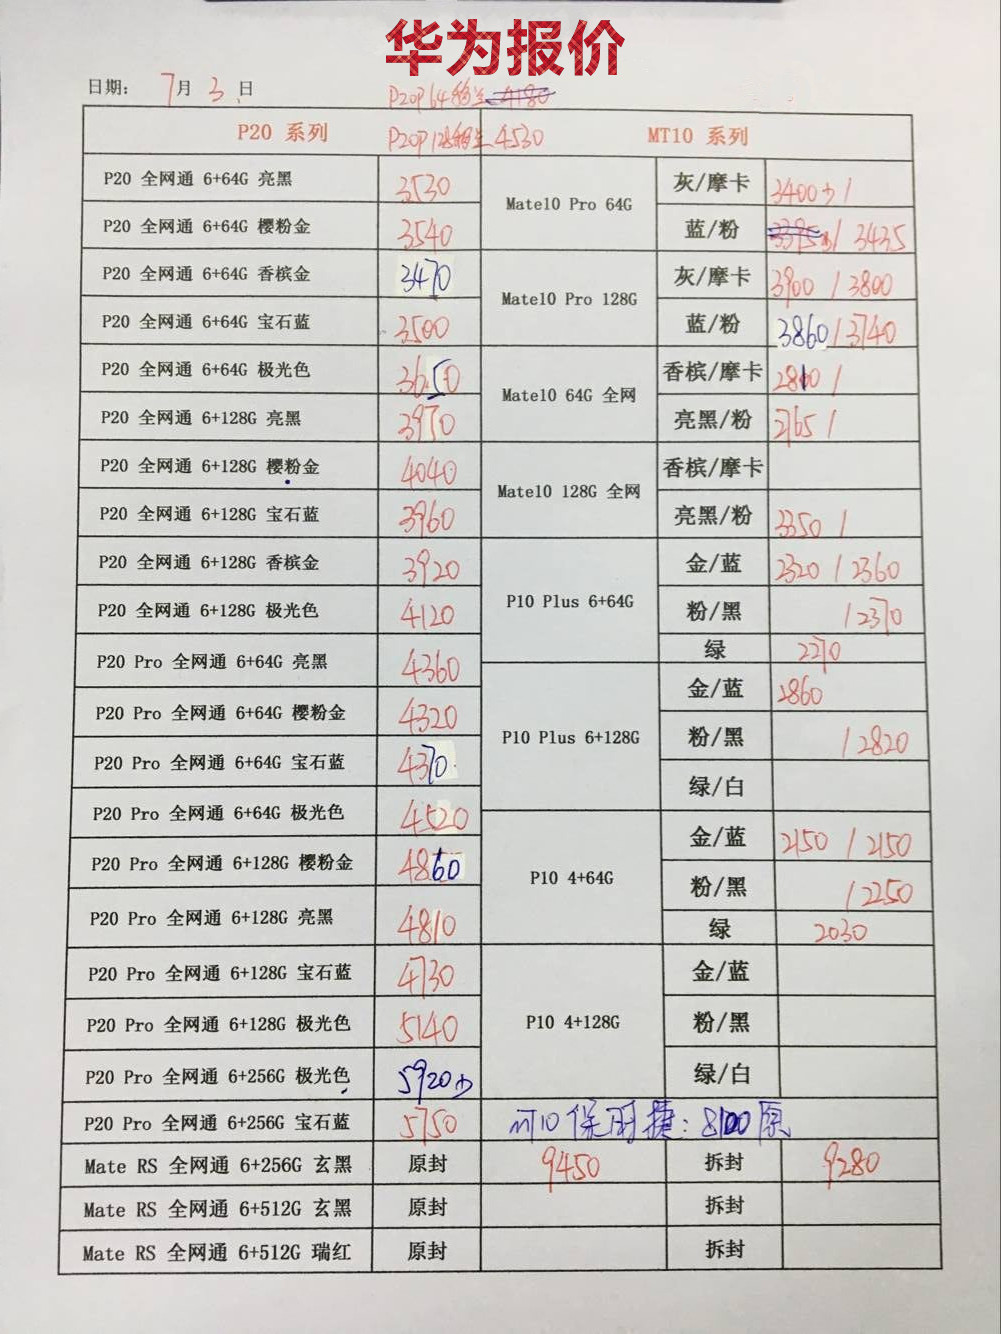 华为报价
日期: 7月 3 日
P20P 64 4180
P20P 128 4530
P20 系列 MT10 系列
P20 全网通 6+64G 亮黑 3530
P20 全网通 6+64G 樱粉金 3540
P20 全网通 6+64G 香槟金 3470
P20 全网通 6+64G 宝石蓝 3500
P20 全网通 6+64G 极光色 3650
P20 全网通 6+128G 亮黑 3970
P20 全网通 6+128G 樱粉金 4040
P20 全网通 6+128G 宝石蓝 3960
P20 全网通 6+128G 香槟金 3920
P20 全网通 6+128G 极光色 4120
P20 Pro 全网通 6+64G 亮黑 4360
P20 Pro 全网通 6+64G 樱粉金 4320
P20 Pro 全网通 6+64G 宝石蓝 4370
P20 Pro 全网通 6+64G 极光色 4520
P20 Pro 全网通 6+128G 樱粉金 4860
P20 Pro 全网通 6+128G 亮黑 4810
P20 Pro 全网通 6+128G 宝石蓝 4730
P20 Pro 全网通 6+128G 极光色 5140
P20 Pro 全网通 6+256G 极光色 5920少
P20 Pro 全网通 6+256G 宝石蓝 5750
Mate10 Pro 64G
灰/摩卡 3400少/
蓝/粉 3395 / 3435
Mate10 Pro 128G
灰/摩卡 3900 / 3800
蓝/粉 3860 / 3740
Mate10 64G 全网
香槟/摩卡 2810 /
亮黑/粉 2765 /
Mate10 128G 全网
香槟/摩卡
亮黑/粉 3350 /
P10 Plus 6+64G
金/蓝 2320 / 2360
粉/黑 / 2370
绿 2270
P10 Plus 6+128G
金/蓝 2860
粉/黑 / 2820
绿/白
P10 4+64G
金/蓝 2150 / 2150
粉/黑 / 2250
绿 2030
P10 4+128G
金/蓝
粉/黑
绿/白
MT10 保时捷: 8100 原
Mate RS 全网通 6+256G 玄黑 原封 9450 拆封 9280
Mate RS 全网通 6+512G 玄黑 原封 拆封
Mate RS 全网通 6+512G 瑞红 原封 拆封